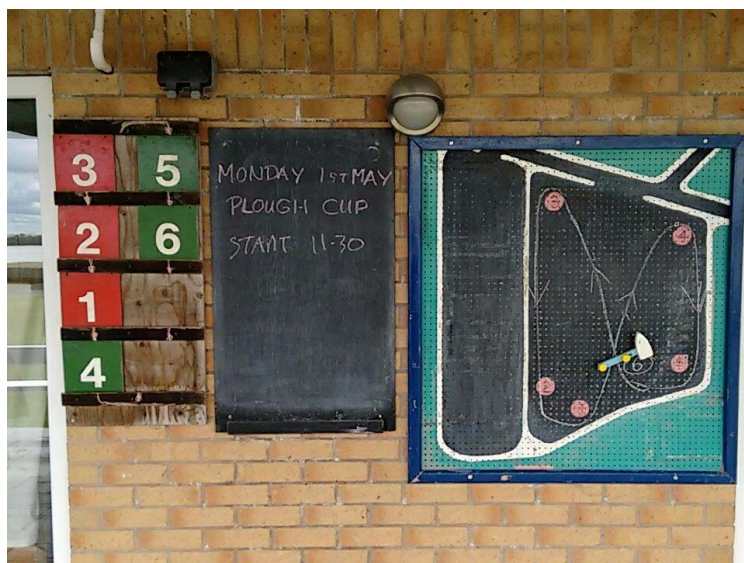 3 5
2 6
1
4
MONDAY 1ST MAY
PLOUGH CUP
START 11-30
3
4
6
2